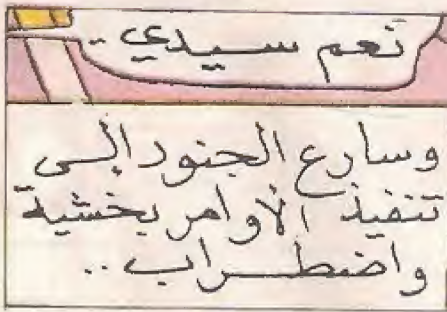 نعم سيدي ..
وسارع الجنود إلى
تنفيذ الأوامر بخشية
واضطراب ..